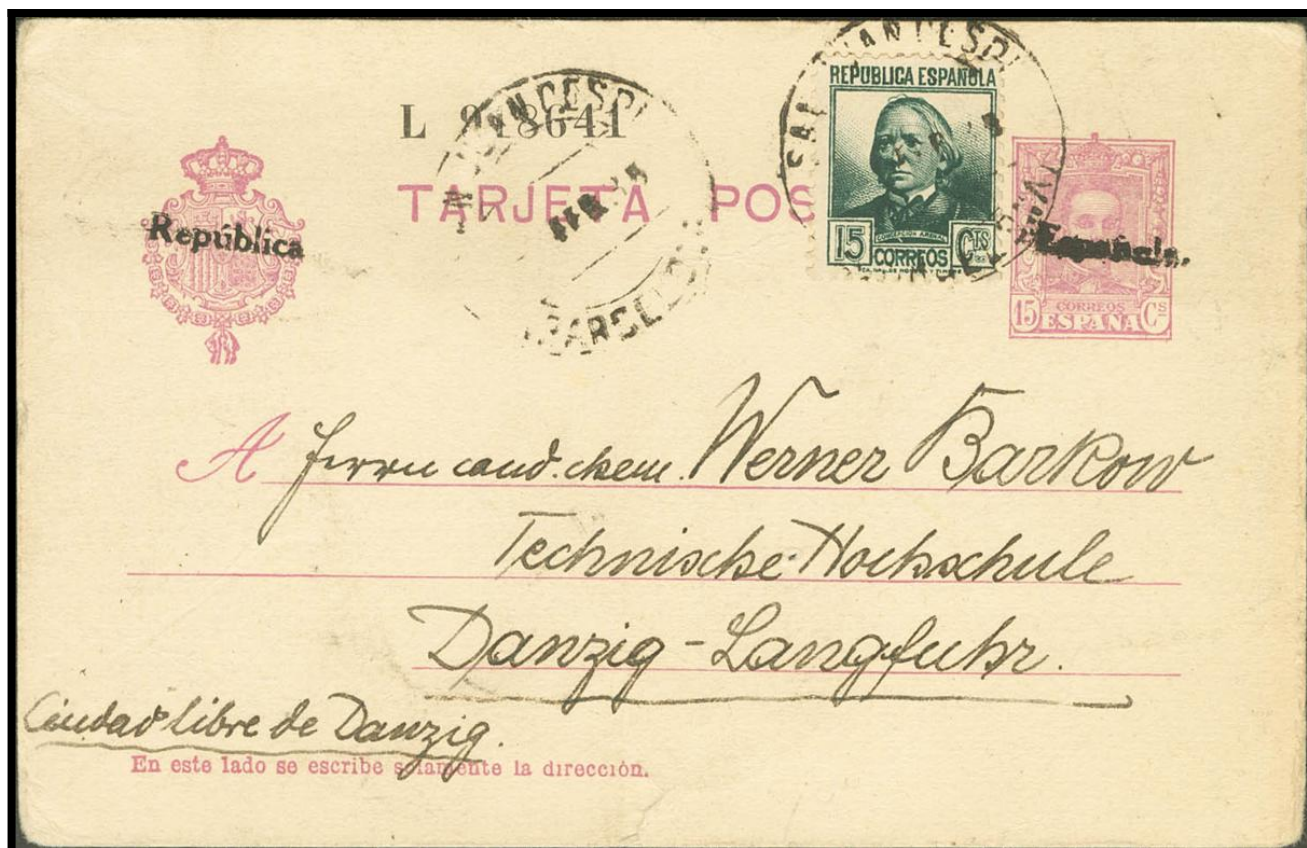 L 918641
TARJETA POS
República
Española.
REPUBLICA ESPAÑOLA
CONCEPCION ARENAL
15 CTS
CORREOS
CORREOS
15 ESPAÑA Cs
A Herrn cand. chem. Werner Barkow
Technische Hochschule
Danzig-Langfuhr.
Ciudad libre de Danzig.
En este lado se escribe solamente la dirección.